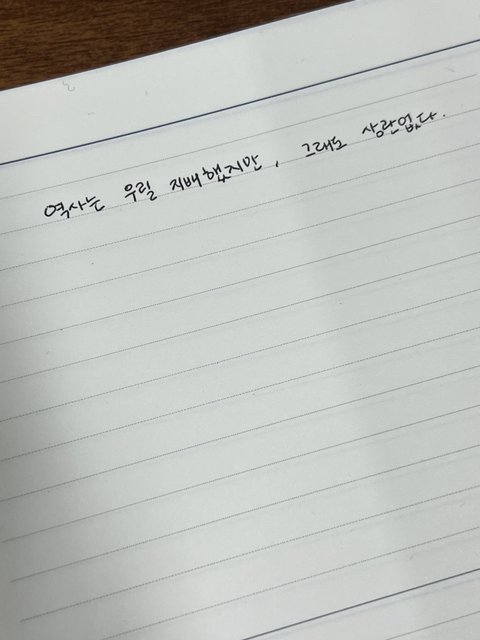 역사는 우릴 지배했지만, 그래도 상관없다.